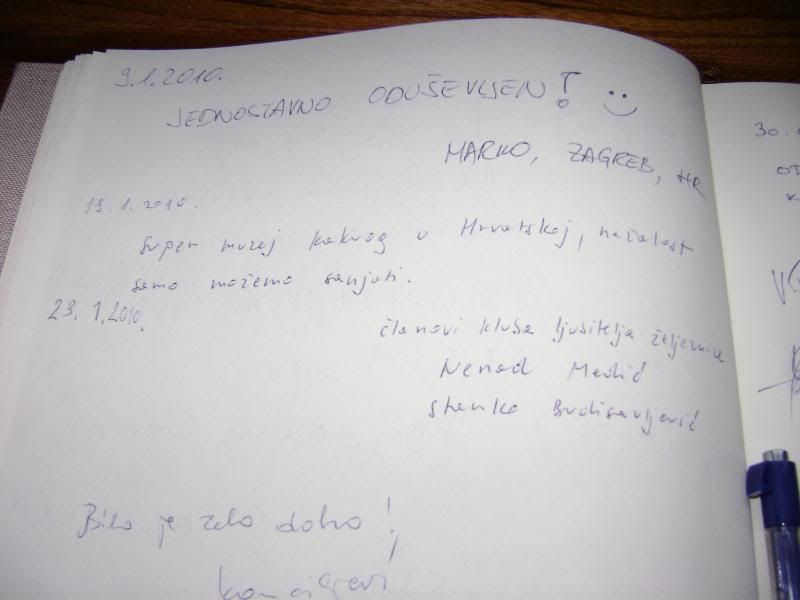 9.1.2010.
JEDNOSTAVNO ODUŠEVLJEN!
MARKO, ZAGREB, HR
19.1.2010.
Super muzej kakvog u Hrvatskoj, nažalost
samo možemo sanjati.
23.1.2010.
članovi kluba ljubitelja željeznice
Nenad Medić
Stanko Budisavljević
Bilo je zelo dobro!
30.
OT